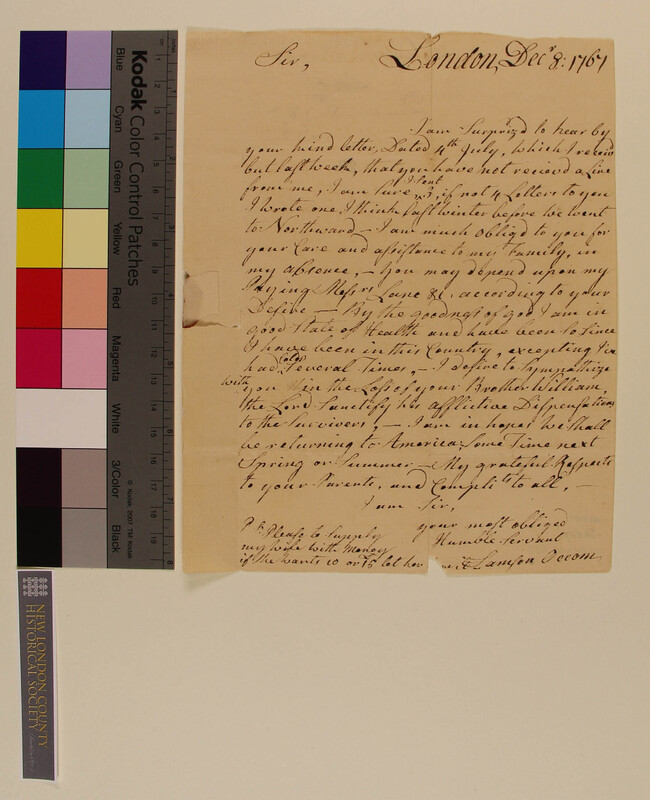 Sir,
London, Decr 8: 1767
I am Surpriz'd to hear by
your kind letter, Dated 4th July, which I receivd
but last week, that you have not recievd a Line
from me, I am Sure I Sent 3, if not 4 Letters to you
I wrote one I think last winter before we went
to Northward – I am much Obligd to you for
your Care and assistance to my Family, in
my absence, – you may depend upon my
Paying Messrs Lane &c, according to your
Desire – By the goodness of god I am in
good State of Health and have been So Since
I have been in this Country, excepting I've
had Colds Several Times, – I desire to Sympathize
with you in the Loss of your Brother William,
the Lord Sanctify his afflictive Dispensations
to the Survivers, – I am in hopes we Shall
be returning to America Some Time next
Spring or Summer – My grateful Respects
to your Parents, and Complits to all, –
I am Sir,
your most obliged
Humble Servant
Samson Occom
PS Please to Supply
my wife with Money
if She wants 10 or 15 let her
Kodak Color Control Patches
Blue
Cyan
Green
Yellow
Red
Magenta
White
3/Color
Black
© Kodak, 2007 TM: Kodak
NEW LONDON COUNTY
HISTORICAL SOCIETY